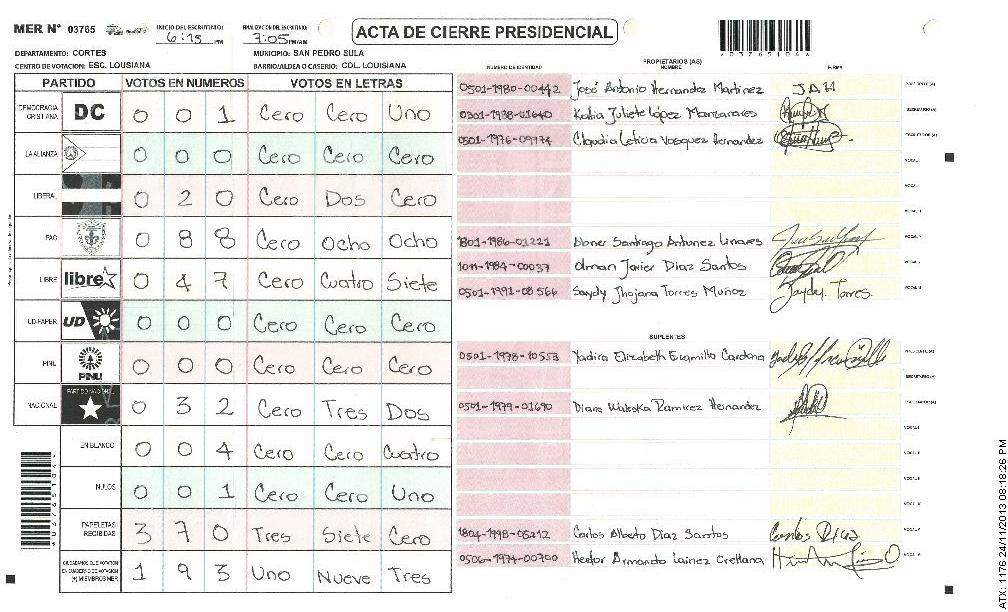 MER N° 03765
INICIO DEL ESCRUTINIO: 6:15 PM
FINALIZACION DEL ESCRUTINIO: 7:05 PM/AM
ACTA DE CIERRE PRESIDENCIAL
DEPARTAMENTO: CORTES
MUNICIPIO: SAN PEDRO SULA
CENTRO DE VOTACION: ESC. LOUSIANA
BARRIO/ALDEA O CASERIO: COL. LOUISIANA
PARTIDO VOTOS EN NUMEROS VOTOS EN LETRAS
DEMOCRACIA CRISTIANA DC 0 0 1 Cero Cero Uno
LA ALIANZA 0 0 0 Cero Cero Cero
LIBERAL 0 2 0 Cero Dos Cero
PAC 0 8 8 Cero Ocho Ocho
LIBRE libre 0 4 7 Cero Cuatro Siete
UD-FAPER UD 0 0 0 Cero Cero Cero
PINU PINU 0 0 0 Cero Cero Cero
NACIONAL PARTIDO NACIONAL 0 3 2 Cero Tres Dos
EN BLANCO 0 0 4 Cero Cero Cuatro
NULOS 0 0 1 Cero Cero Uno
PAPELETAS RECIBIDAS 3 7 0 Tres Siete Cero
CIUDADANOS QUE VOTARON EN CUADERNO DE VOTACION (+) MIEMBROS MER 1 9 3 Uno Nueve Tres
PROPIETARIOS (AS)
NUMERO DE IDENTIDAD NOMBRE FIRMA
0501-1980-00442 José Antonio Hernandez Martinez JAH PRESIDENTE (A)
0301-1988-01640 Katia Juliete López Manzanares SECRETARIO (A)
0501-1976-09974 Claudia Leticia Vasquez Hernandez ESCRUTADOR (A)
VOCAL I
VOCAL
VOCAL
1801-1986-01221 Abner Santiago Antunez Linares VOCAL
1011-1984-00037 Olman Javier Diaz Santos VOCAL
0501-1991-08566 Saydy Jhojana Torres Muñoz Saydy Torres VOCAL
SUPLENTES
0501-1978-10553 Yadira Elizabeth Escamilla Cardona PRESIDENTE (A)
SECRETARIO (A)
0501-1979-01690 Diana Waleska Ramirez Hernandez ESCRUTADOR (A)
VOCAL I
VOCAL
VOCAL
VOCAL
1804-1998-05212 Carlos Alberto Diaz Santos Carlos Diaz VOCAL
0506-1974-00700 Hector Armando Lainez Orellana VOCAL
ATX: 1176 24/11/2013 08:18:26 PM